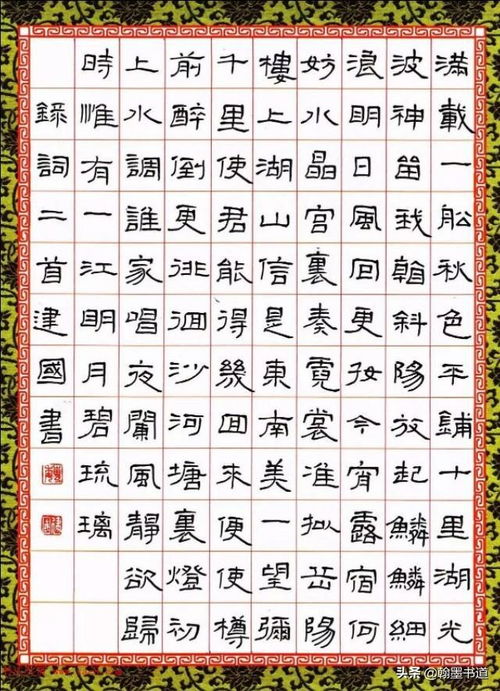 滿載一舩秋色平鋪十里湖光
波神留我看斜陽放起鱗鱗細
浪明日風回更好今宵露宿何
妨水晶宮裏奏霓裳准擬岳陽
樓上湖山信是東南美一望彌
千里使君能得幾回來便使樽
前醉倒更徘徊沙河塘裏燈初
上水調誰家唱夜闌風靜欲歸
時惟有一江明月碧琉璃
錄詞二首建國書
头条 @翰墨书道